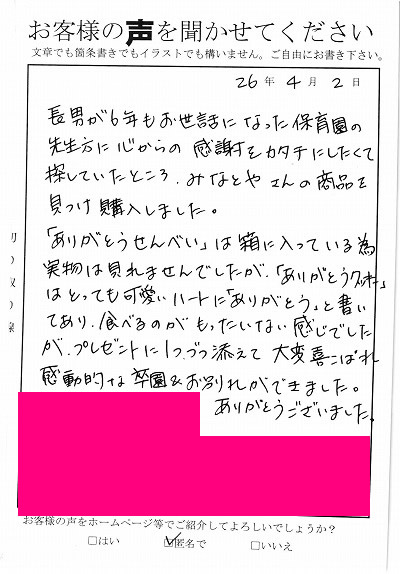 お客様の声を聞かせてください
文章でも箇条書きでもイラストでも構いません。ご自由にお書き下さい。
26年 4月 2日
長男が6年もお世話になった保育園の
先生方に心からの感謝をカタチにしたくて
探していたところ、みなとやさんの商品を
見つけ購入しました。
「ありがとうせんべい」は箱に入っている為
実物は見れませんでしたが、「ありがとうクッキー」
はとっても可愛いハートに「ありがとう」と書い
てあり、食べるのがもったいない感じでした
が、プレゼントに1つづつ添えて大変喜こばれ
感動的な卒園&お別れができました。
ありがとうございました。
お客様の声をホームページ等でご紹介してよろしいでしょうか?
□はい ☑匿名で □いいえ